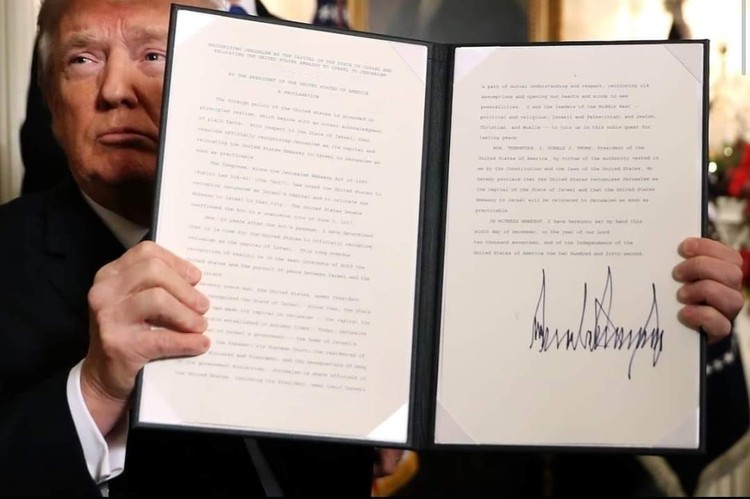 RECOGNIZING JERUSALEM AS THE CAPITAL OF THE STATE OF ISRAEL AND
RELOCATING THE UNITED STATES EMBASSY TO ISRAEL TO JERUSALEM
BY THE PRESIDENT OF THE UNITED STATES OF AMERICA
A PROCLAMATION
The foreign policy of the United States is grounded in
principled realism, which begins with an honest acknowledgment
of plain facts. With respect to the State of Israel, that
requires officially recognizing Jerusalem as its capital and
relocating the United States Embassy to Israel to Jerusalem as
soon as practicable.
The Congress, since the Jerusalem Embassy Act of 1995
(Public Law 104-45) (the "Act"), has urged the United States to
recognize Jerusalem as Israel's capital and to relocate our
Embassy to Israel to that city. The United States Senate
reaffirmed the Act in a unanimous vote on June 5, 2017.
Now, 22 years after the Act's passage, I have determined
that it is time for the United States to officially recognize
Jerusalem as the capital of Israel. This long overdue
recognition of reality is in the best interests of both the
United States and the pursuit of peace between Israel and the
years ago, the United States, under President
recognized the State of Israel. Since then, the State
has made its capital in Jerusalem -- the capital the
established in ancient times. Today, Jerusalem
of Israel's government -- the home of Israel's
the Knesset; its Supreme Court; the residences of
Minister and President; and the headquarters of many
government ministries. Jerusalem is where officials of
the United States, including the President, meet their Israeli
a path of mutual understanding and respect, rethinking old
assumptions and opening our hearts and minds to new
possibilities. I ask the leaders of the Middle East --
political and religious; Israeli and Palestinian; and Jewish,
Christian, and Muslim -- to join us in this noble quest for
lasting peace.
NOW, THEREFORE, I, DONALD J. TRUMP, President of the
United States of America, by virtue of the authority vested in
me by the Constitution and the laws of the United States, do
hereby proclaim that the United States recognizes Jerusalem as
the capital of the State of Israel and that the United States
Embassy to Israel will be relocated to Jerusalem as soon as
practicable.
IN WITNESS WHEREOF, I have hereunto set my hand this
sixth day of December, in the year of our Lord
two thousand seventeen, and of the Independence of the
United States of America the two hundred and forty-second.